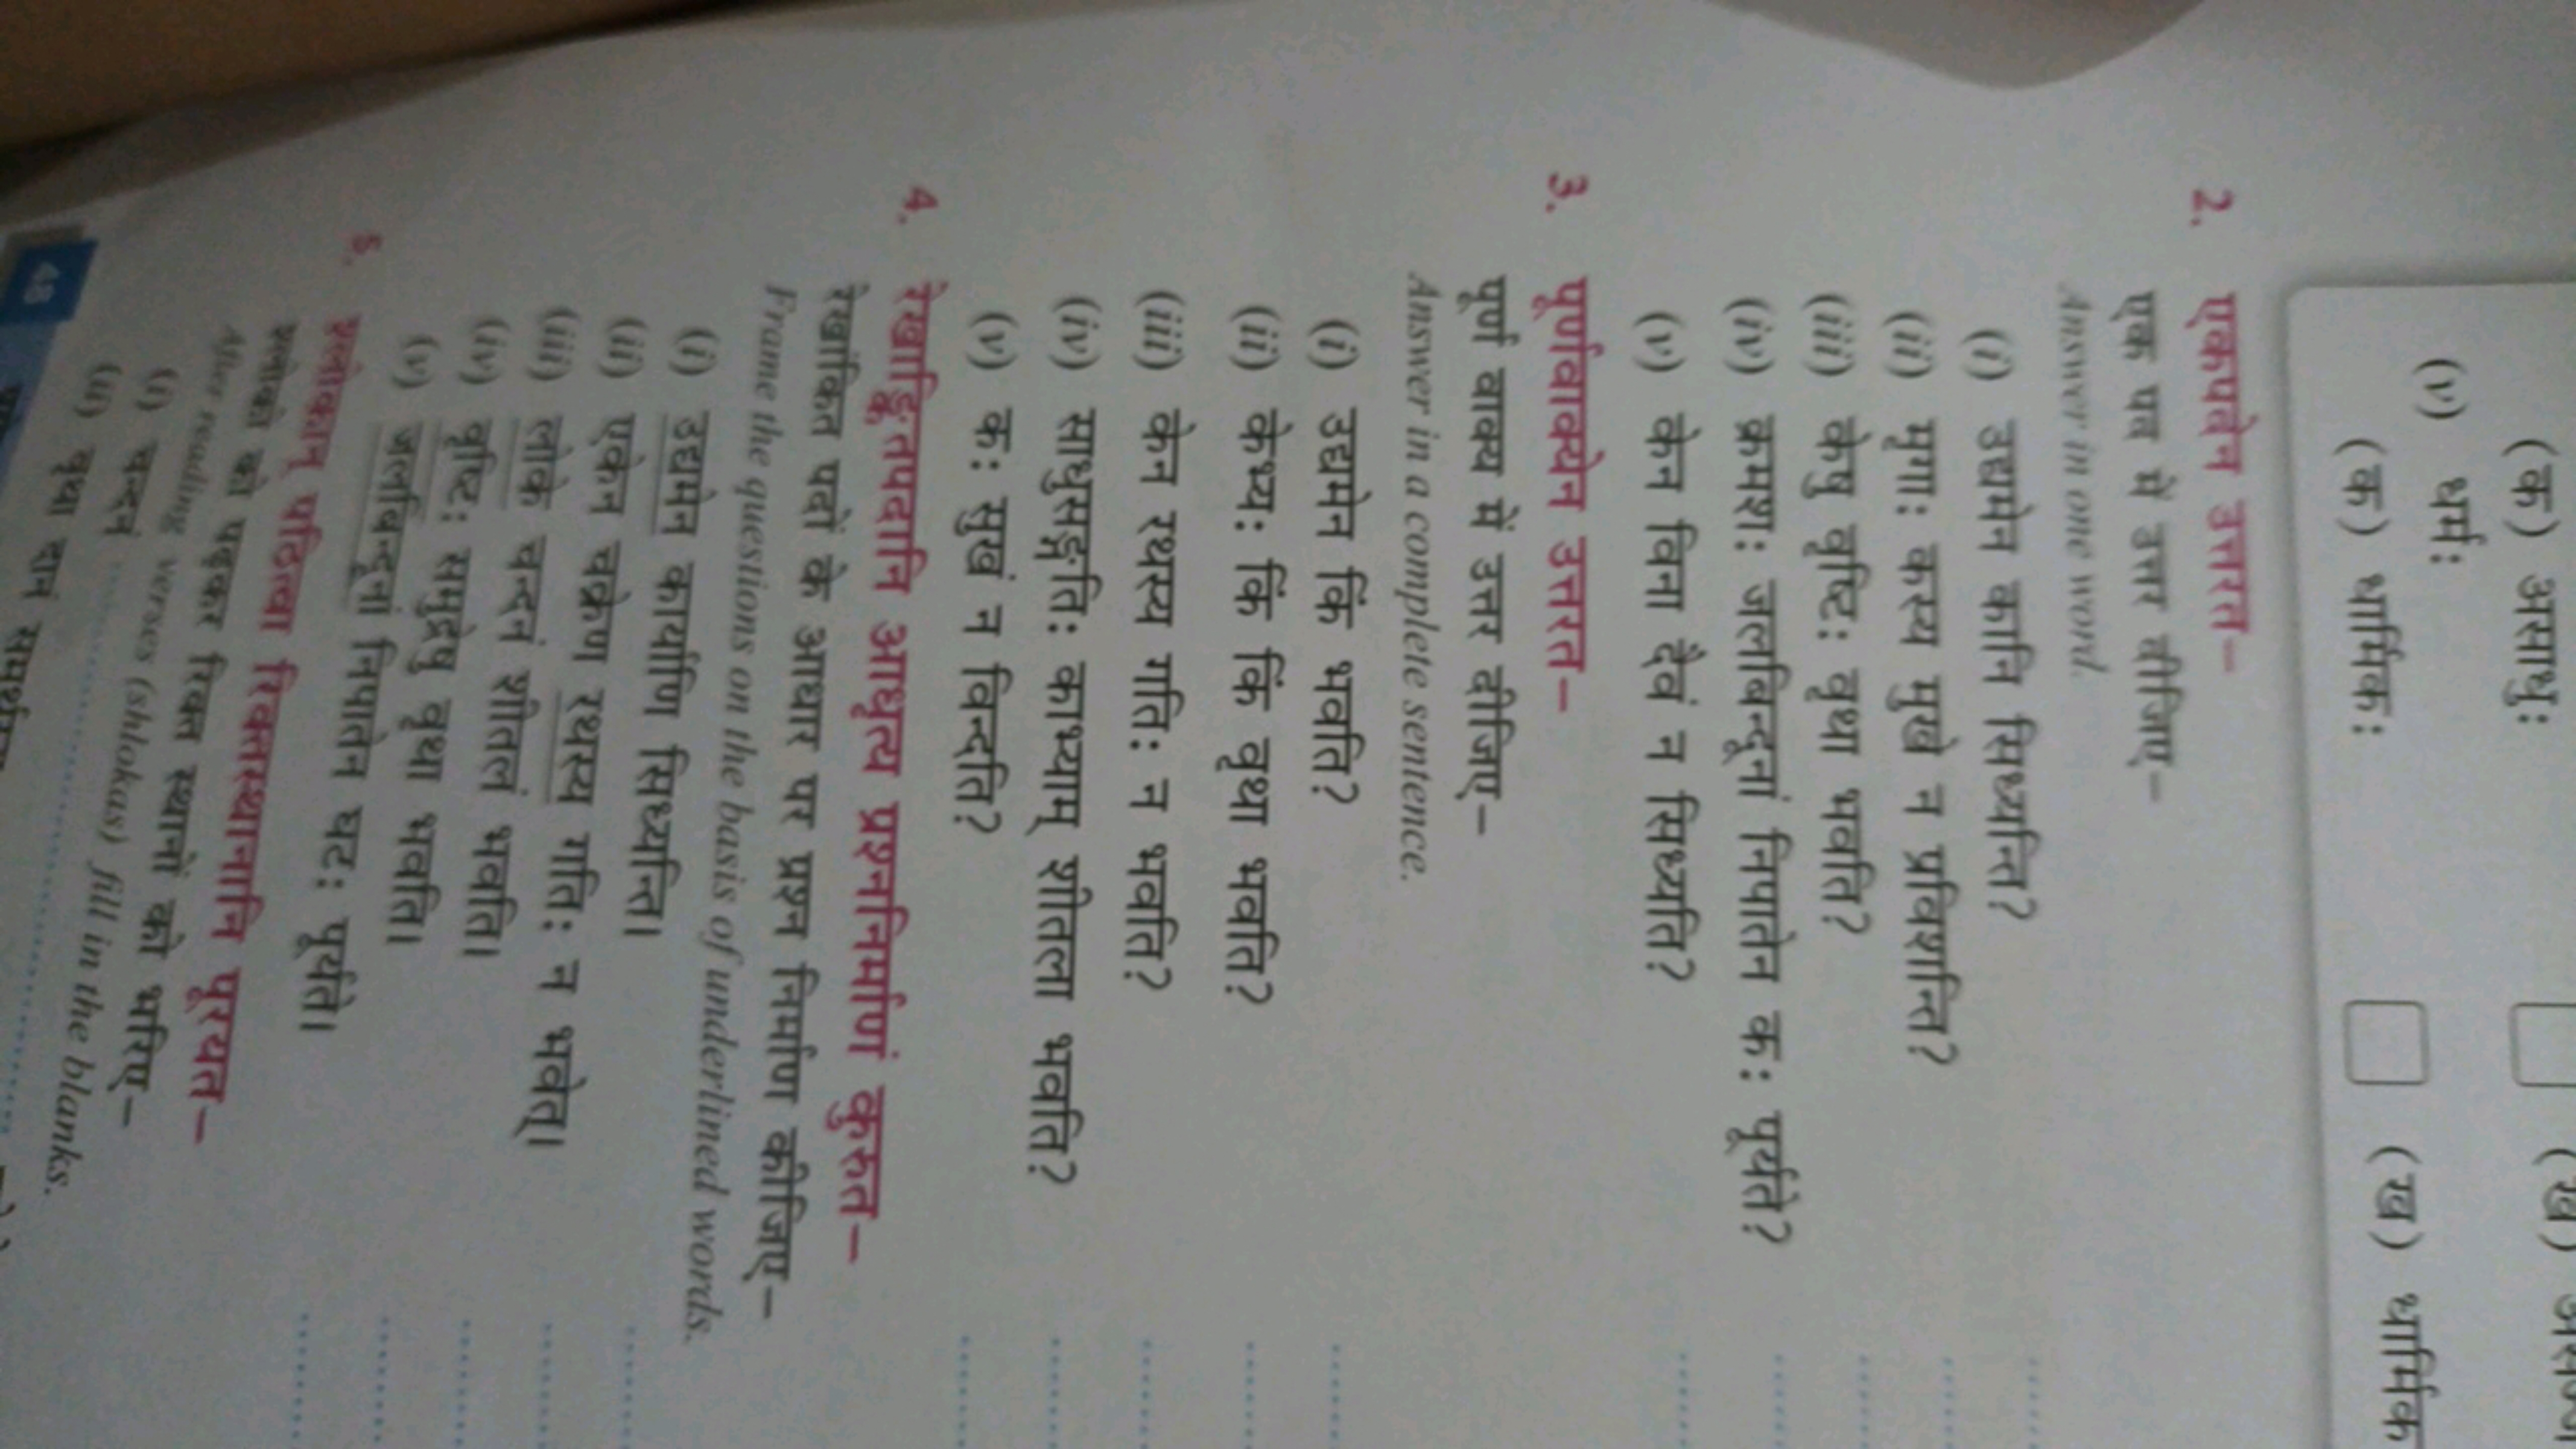 (क) असाधुः
(v) धर्मः
(क) धार्मिकः (ख) धार्मिक
2. एकपदेन उत्तरत–
एक पद में उत्तर दीजिए–
Answer in one word.
(i) उद्यमेन कानि सिध्यन्ति?
(ii) मृगाः कस्य मुखे न प्रविशन्ति?
(iii) केषु वृष्टिः वृथा भवति?
(iv) क्रमशः जलबिन्दूनां निपातेन कः पूर्यते?
(v) केन विना दैवं न सिध्यति?
3. पूर्णवाक्येन उत्तरत–
पूर्ण वाक्य में उत्तर दीजिए–
Answer in a complete sentence.
(i) उद्यमेन किं भवति?
(ii) केभ्यः किं किं वृथा भवति?
(iii) केन रथस्य गतिः न भवति?
(iv) साधुसङ्गतिः काभ्याम् शीतला भवति?
(v) कः सुखं न विन्दति?
4. रेखाङ्कितपदानि आधृत्य प्रश्ननिर्माणं कुरुत–
रेखांकित पदों के आधार पर प्रश्न निर्माण कीजिए–
Frame the questions on the basis of underlined words.
(i) उद्यमेन कार्याणि सिध्यन्ति।
(ii) एकेन चक्रेण रथस्य गतिः न भवेत्।
(iii) लोके चन्दनं शीतलं भवति।
(iv) वृष्टिः समुद्रेषु वृथा भवति।
(v) जलबिन्दूनां निपातेन घटः पूर्यते।
5. श्लोकान् पठित्वा रिक्तस्थानानि पूरयत–
श्लोकों को पढ़कर रिक्त स्थानों को भरिए–
After reading verses (shlokas) fill in the blanks.
(i) चन्दनं
(ii) वृथा दानं
48